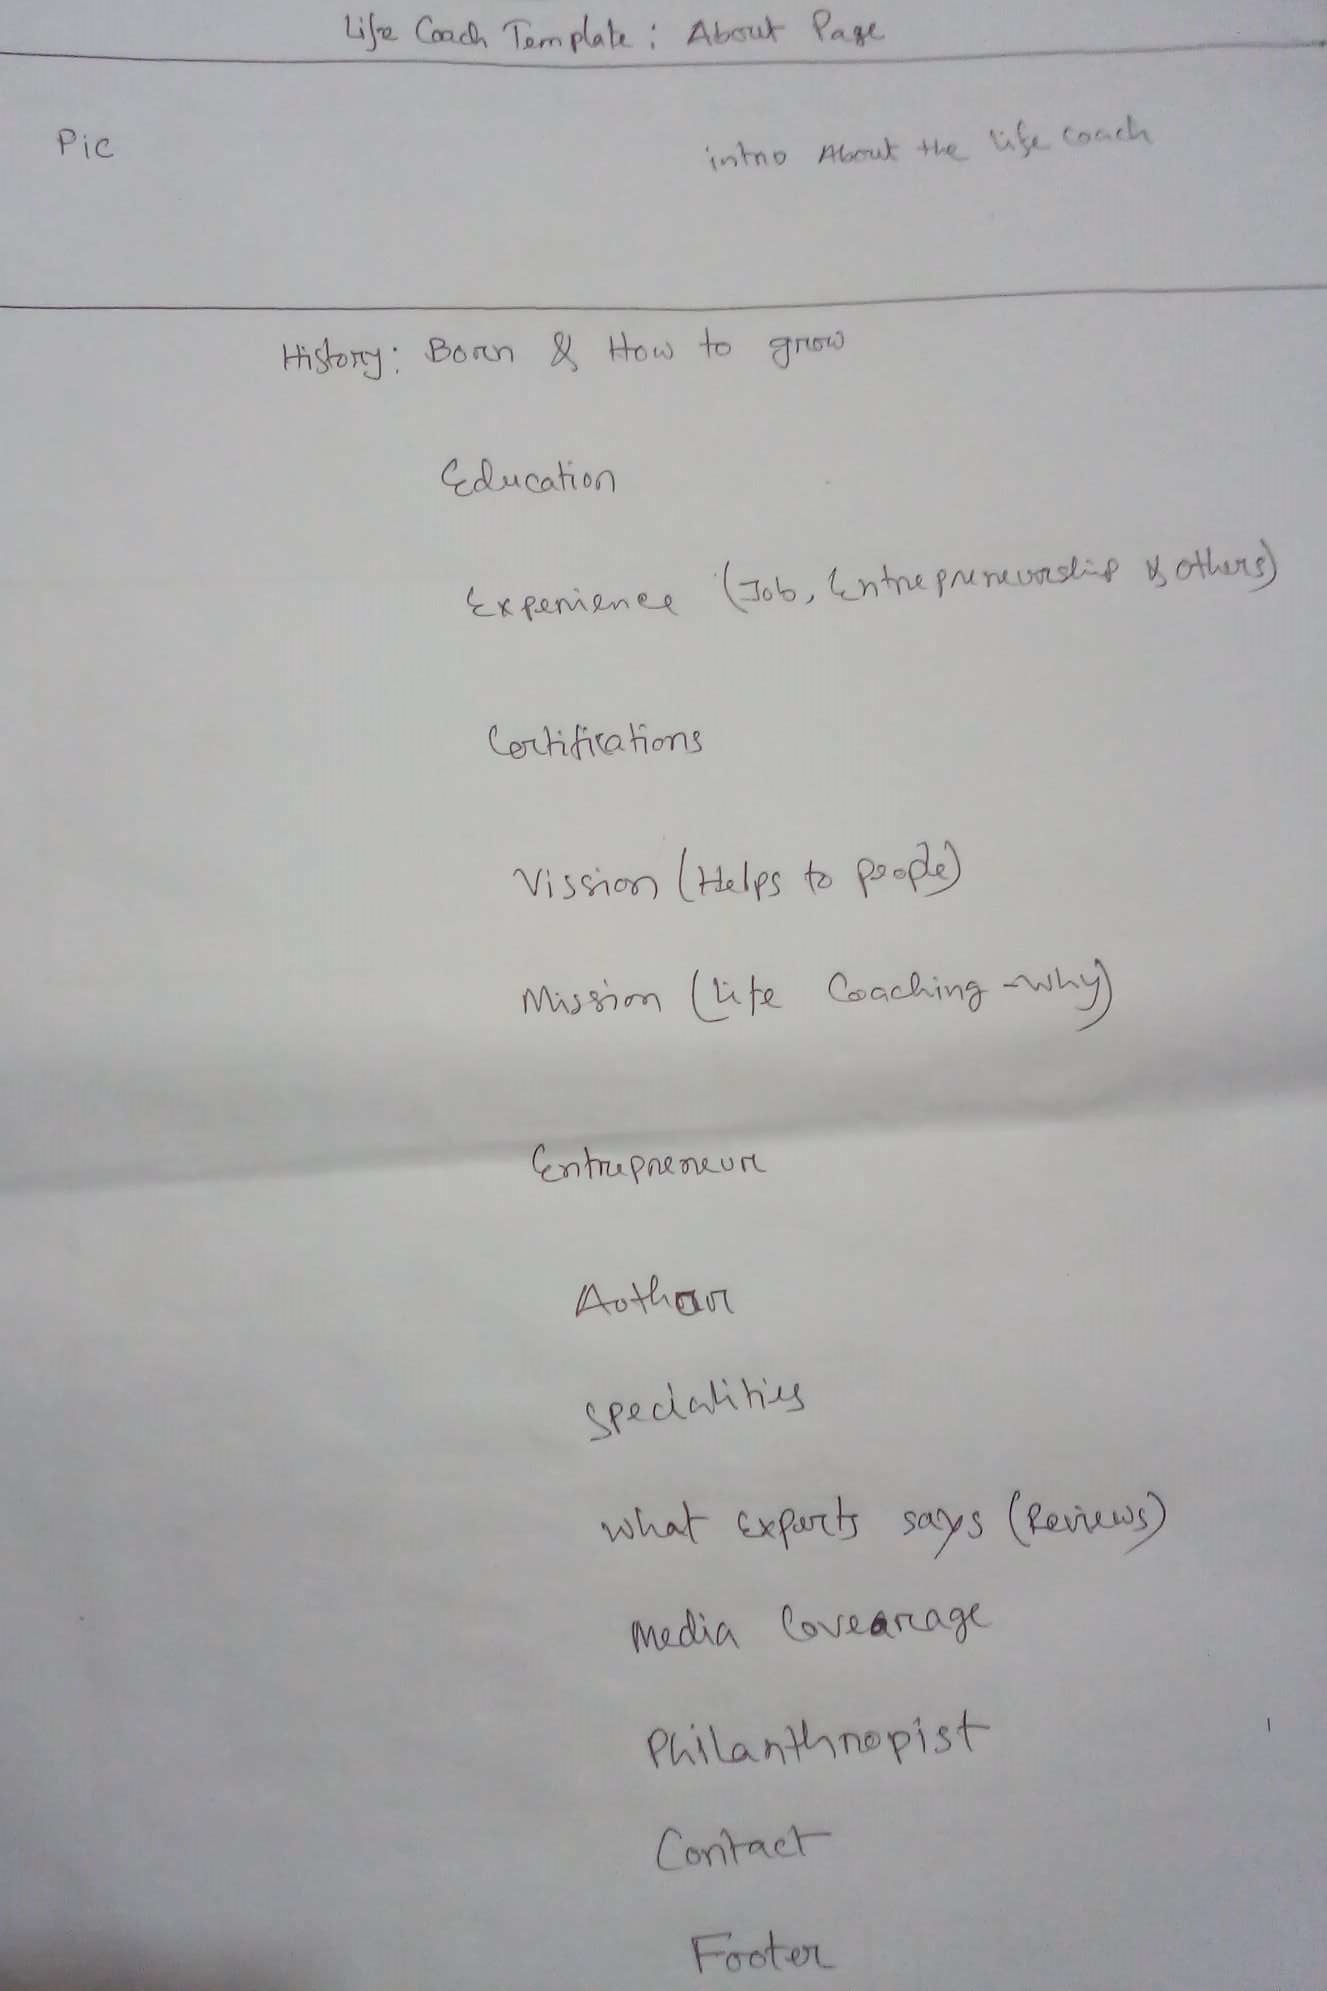 Life Coach Template : About Page
Pic
intro About the life coach
History: Born & How to grow
Education
Experience (Job, Entrepreneurship & others)
Certifications
Vission (Helps to people)
Mission (Life Coaching - Why)
Entrepreneur
Author
Specialities
What Experts says (Reviews)
Media Covearage
Philanthropist
Contact
Footer